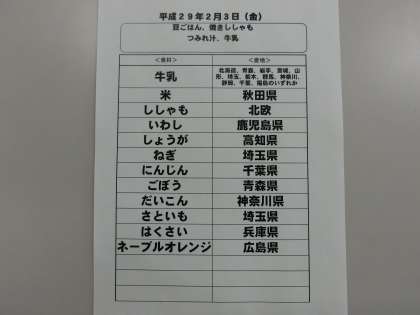 平成29年2月3日（金）
豆ごはん、焼きししゃも
つみれ汁、牛乳
＜食材＞ ＜産地＞
牛乳 北海道、青森、岩手、宮城、山形、埼玉、栃木、群馬、神奈川、静岡、千葉、福島のいずれか
米 秋田県
ししゃも 北欧
いわし 鹿児島県
しょうが 高知県
ねぎ 埼玉県
にんじん 千葉県
ごぼう 青森県
だいこん 神奈川県
さといも 埼玉県
はくさい 兵庫県
ネーブルオレンジ 広島県